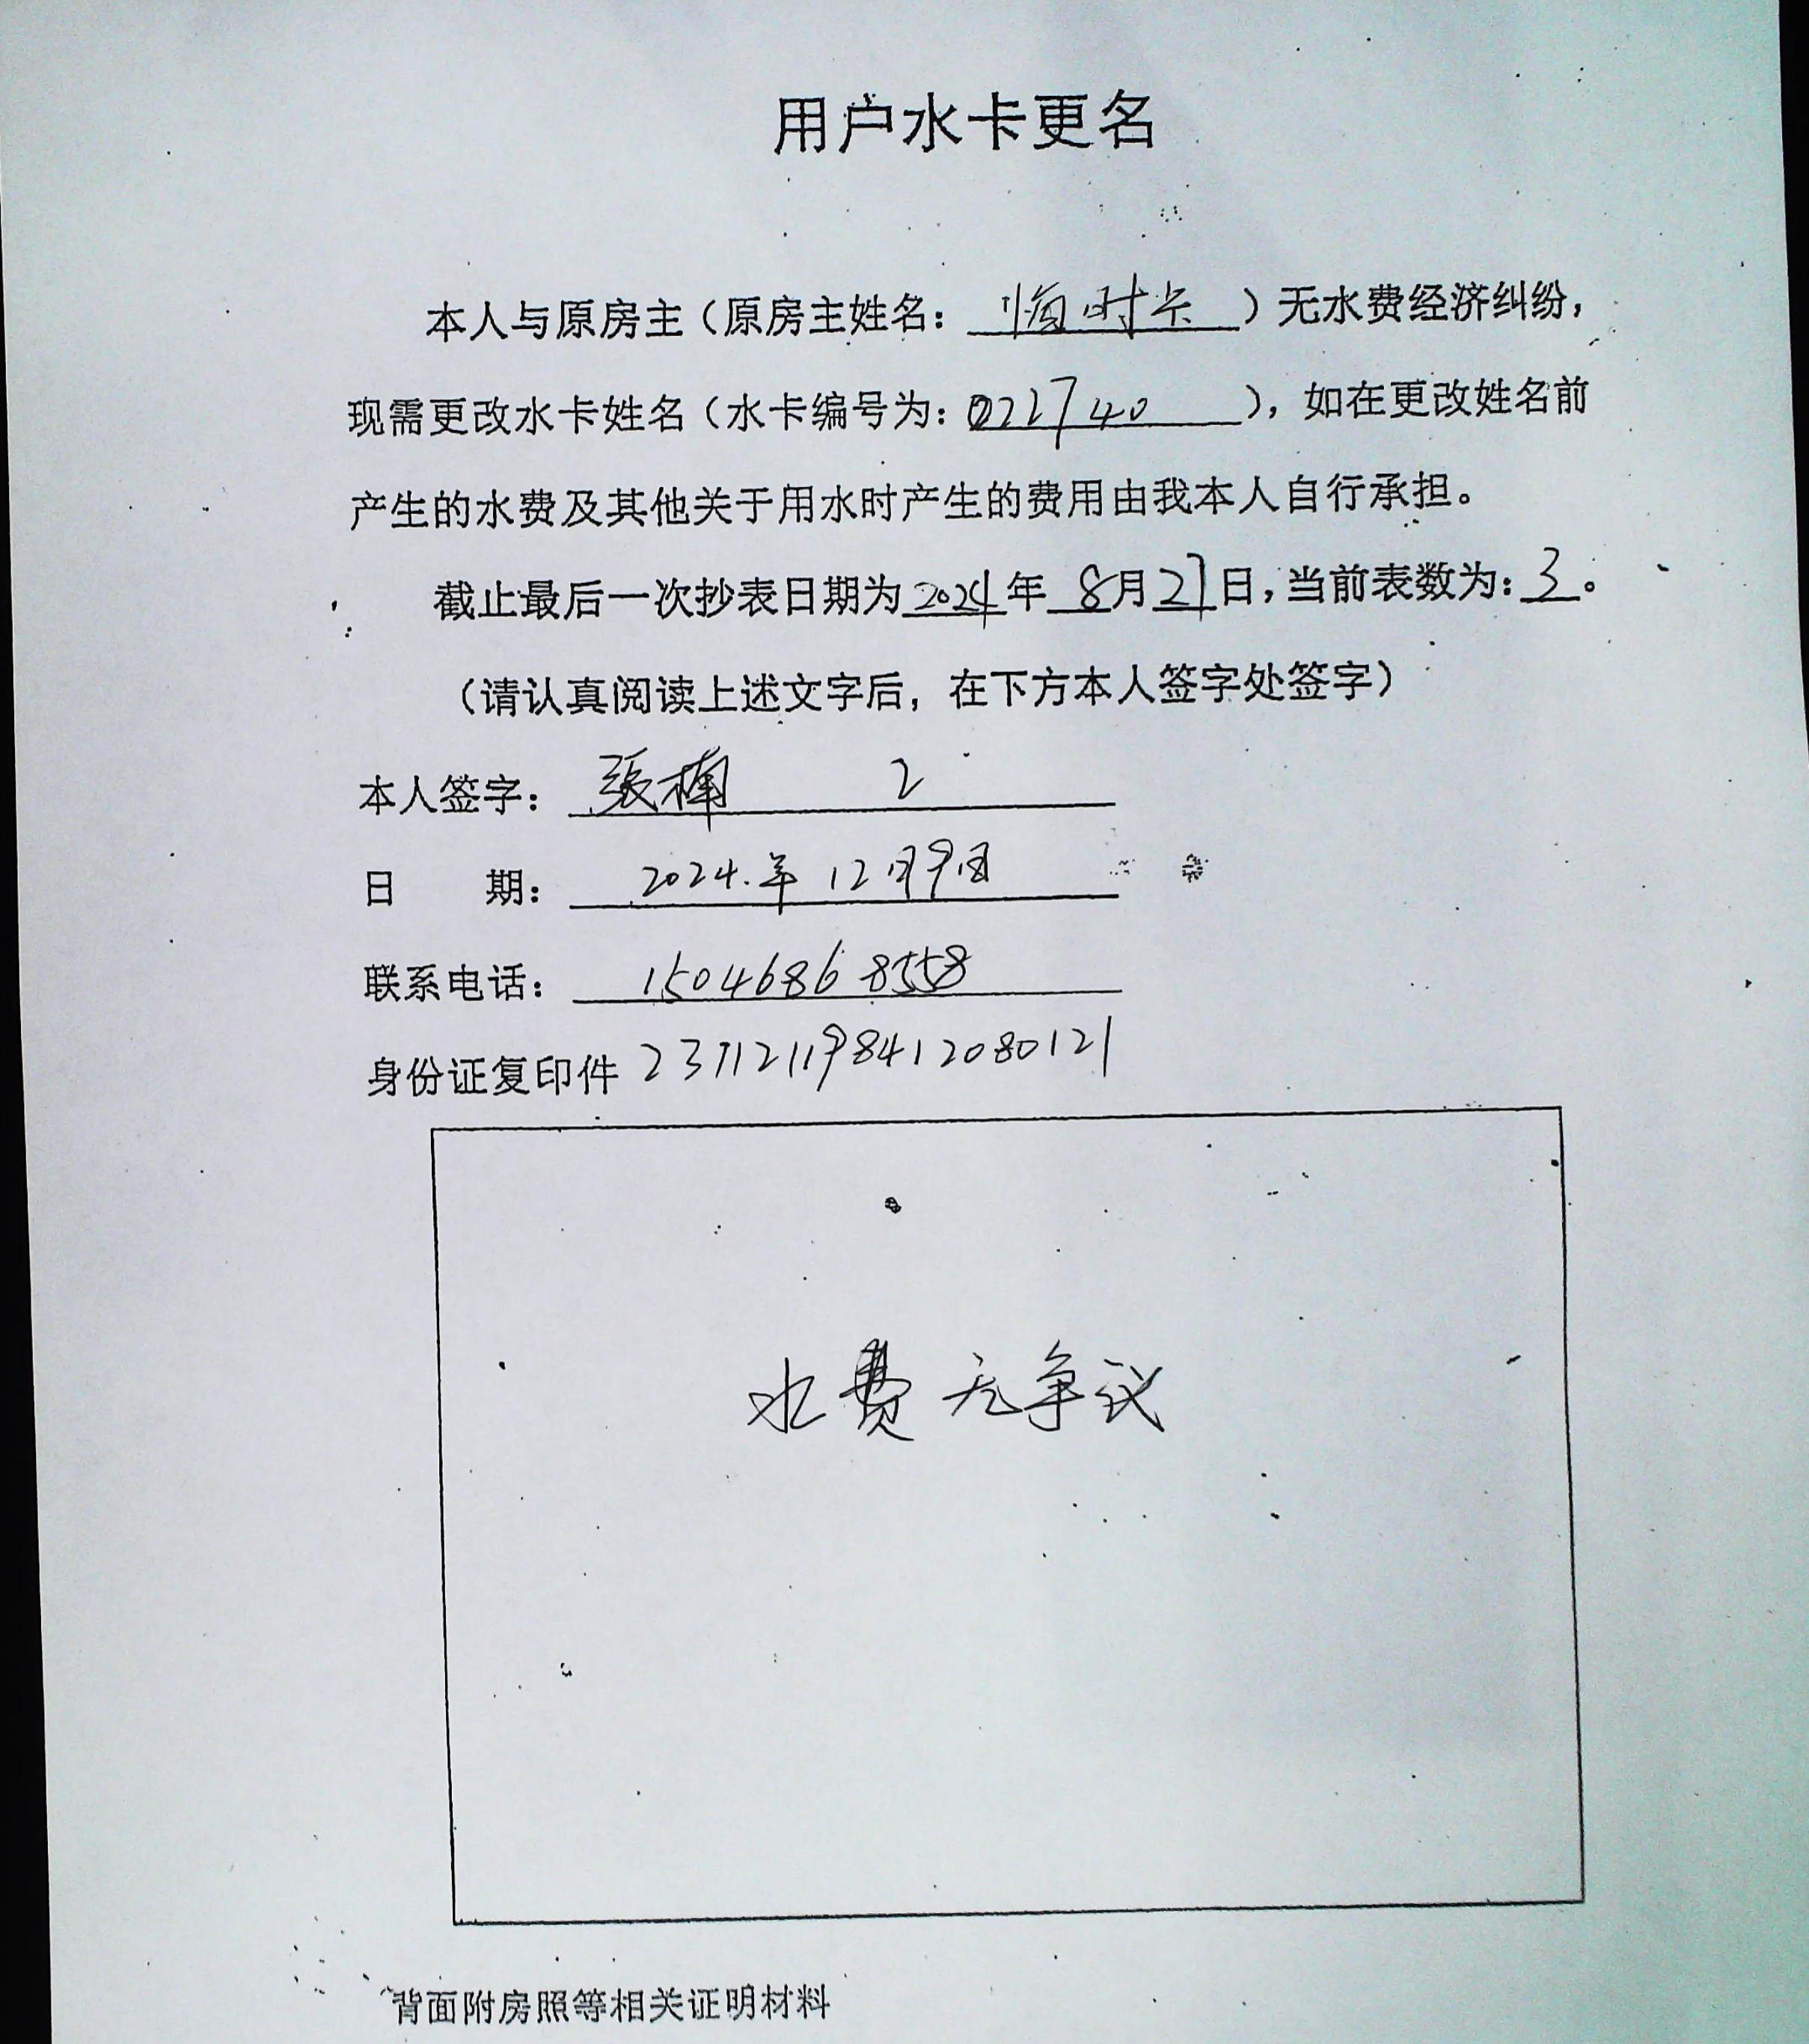 用户水卡更名
本人与原房主（原房主姓名：临时卡）无水费经济纠纷，
现需更改水卡姓名（水卡编号为：022740），如在更改姓名前
产生的水费及其他关于用水时产生的费用由我本人自行承担。
截止最后一次抄表日期为2024年8月21日，当前表数为：3。
（请认真阅读上述文字后，在下方本人签字处签字）
本人签字：張楠 2
日 期：2024.年12月9日
联系电话：15046868558
身份证复印件 231121198412080121
水费无争议
背面附房照等相关证明材料